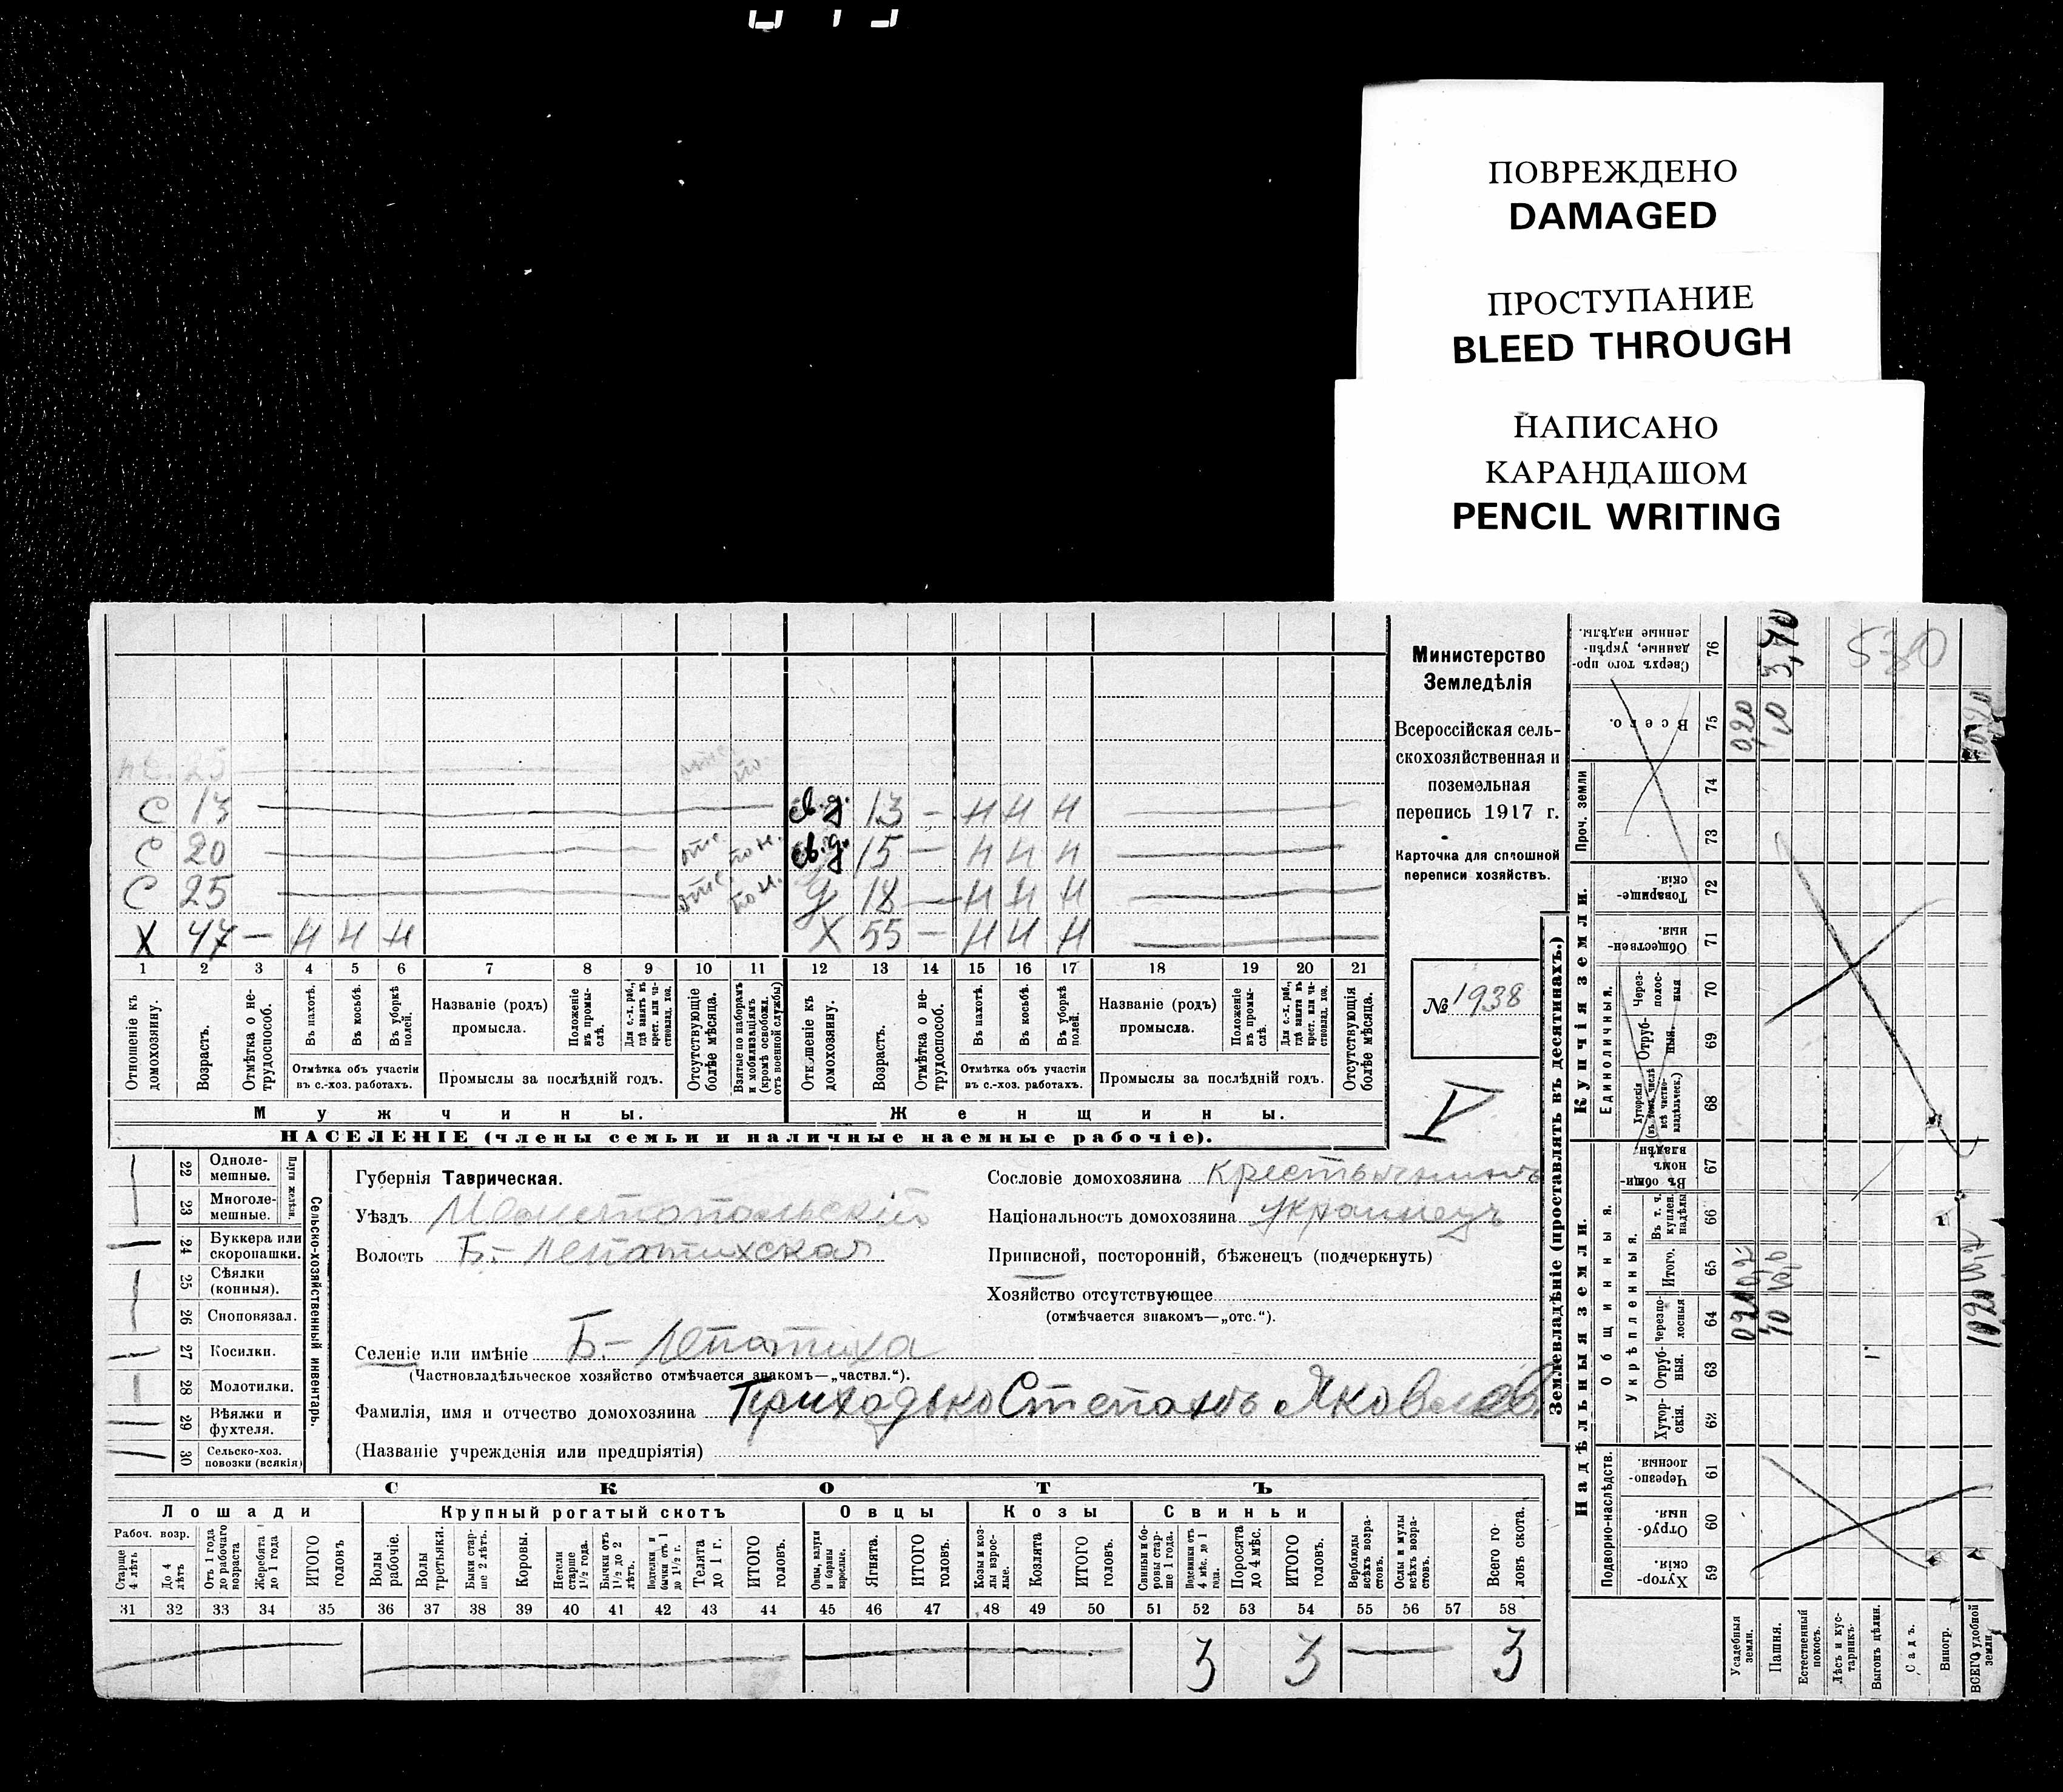 ПОВРЕЖДЕНО
DAMAGED
ПРОСТУПАНИЕ
BLEED THROUGH
НАПИСАНО
КАРАНДАШОМ
PENCIL WRITING
Министерство
Земледѣлія
Всероссійская сель-
скохозяйственная и
поземельная
перепись 1917 г.
Карточка для сплошной
переписи хозяйствъ.
№ 1938
С 13 св. д. 13 — Н Н Н
С 20 св. д. 15 — Н Н Н
С 25 д 18 — Н Н Н
Х 47 — Н Н Н Х 55 — Н Н Н
1 2 3 4 5 6 7 8 9 10 11 12 13 14 15 16 17 18 19 20 21
Отношеніе къ домохозяину.
Возрастъ.
Отмѣтка о не-трудоспособ.
Въ пахотѣ.
Въ косьбѣ.
Въ уборкѣ полей.
Отмѣтка объ участіи въ с.-хоз. работахъ.
Названіе (родъ) промысла.
Положеніе въ промы-слѣ.
Для с.-х. раб., гдѣ занятъ въ крест. или ча-стновлад. хоз.
Промыслы за послѣдній годъ.
Отсутствующіе болѣе мѣсяца.
Взятые по наборамъ и мобилизаціямъ (кромѣ освобожд. отъ военной службы)
Отношеніе къ домохозяину.
Возрастъ.
Отмѣтка о не-трудоспособ.
Въ пахотѣ.
Въ косьбѣ.
Въ уборкѣ полей.
Отмѣтка объ участіи въ с.-хоз. работахъ.
Названіе (родъ) промысла.
Положеніе въ промы-слѣ.
Для с.-х. раб., гдѣ занятъ въ крест. или ча-стновлад. хоз.
Промыслы за послѣдній годъ.
Отсутствующія болѣе мѣсяца.
Мужчины. Женщины.
НАСЕЛЕНІЕ (члены семьи и наличные наемные рабочіе).
Сельско-хозяйственный инвентарь.
Плуги желѣзн.
22 Одноле-мешные.
23 Многоле-мешные.
24 Буккера или скоропашки.
25 Сѣялки (конныя).
26 Сноповязал.
27 Косилки.
28 Молотилки.
29 Вѣялки и фухтеля.
30 Сельско-хоз. повозки (всякія)
Губернія Таврическая.
Уѣздъ Мелитопольскій
Волость Б.-Лепатихская
Селеніе или имѣніе Б.-Лепатиха
(Частновладѣльческое хозяйство отмѣчается знакомъ—„частвл.“).
Фамилія, имя и отчество домохозяина Приходько Степанъ Яковлев.
(Названіе учрежденія или предпріятія)
Сословіе домохозяина крестьянинъ
Національность домохозяина украинецъ
Приписной, посторонній, бѣженецъ (подчеркнуть)
Хозяйство отсутствующее
(отмѣчается знакомъ—„отс.“).
СКОТЪ
Лошади Крупный рогатый скотъ Овцы Козы Свиньи
Рабоч. возр.
Старше 4 лѣтъ
До 4 лѣтъ
Отъ 1 года до рабочаго возраста
Жеребята до 1 года
ИТОГО головъ
Волы рабочіе.
Волы третьяки.
Быки стар-ше 2 лѣтъ.
Коровы.
Нетели старше 1½ года.
Бычки отъ 1½ до 2 лѣтъ.
Подтелки и бычки отъ 1 до 1½ г.
Телята до 1 г.
ИТОГО головъ.
Овцы, валухи и бараны взрослые.
Ягнята.
ИТОГО головъ.
Козы и коз-лы взрос-лые.
Козлята
ИТОГО головъ.
Свиньи и бо-ровы стар-ше 1 года.
Подсвинки отъ 4 мѣс. до 1 года.
Поросята до 4 мѣс.
ИТОГО головъ.
Верблюды всѣхъ возра-стовъ.
Ослы и мулы всѣхъ возра-стовъ.
Всего го-ловъ скота.
31 32 33 34 35 36 37 38 39 40 41 42 43 44 45 46 47 48 49 50 51 52 53 54 55 56 57 58
3 3 3
Землевладѣніе (проставлять въ десятинахъ.)
Купчія земли.
Надѣльныя земли.
Сверхъ того про-данные, укрѣп-ленные надѣлы. 76 3,40
Всего. 75 0,20
Проч. земли
74
73
Товарище-скія. 72
Обществен-ныя. 71
Единоличныя.
Через-полос-ныя 70
Отруб-ныя. 69
Хуторскія (въ томъ числѣ всѣ частно-владѣльческ.) 68
Общинныя.
Въ общи-номъ владѣн 67
Укрѣпленныя.
Въ т. ч. куплен. надѣлы 66
Итого. 65
Черезпо-лосныя 64 10
Отруб-ныя. 63
Хутор-скія. 62
Подворно-наслѣдств.
Черезпо-лосныя 61
Отруб-ныя 60
Хутор-скія. 59
Усадебныя земли.
Пашня.
Естественный покосъ.
Лѣсъ и кус-тарникъ.
Выгонъ цѣлин.
Садъ.
Виногр.
ВСЕГО удобной земли.